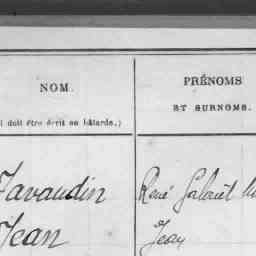 NOM.
PRÉNOMS
ET SURNOMS.
doit être écrit en bâtarde.)
Javaudin
René Gabriel
Jean
Jean